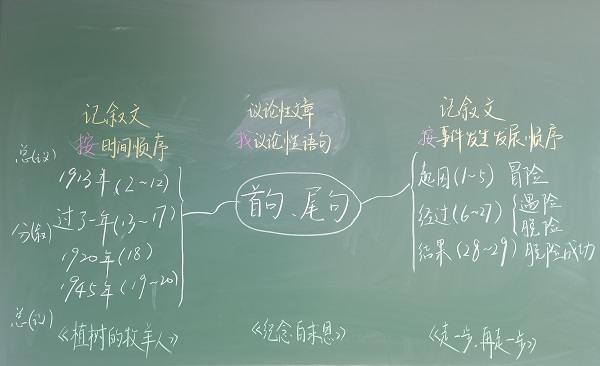 记叙文
按时间顺序
总(议)
1913年(2~12)
过了一年(13~17)
分(叙)
1920年(18)
1945年(19~20)
总(议)
《植树的牧羊人》
议论性文章
找议论性语句
首句、尾句
《纪念白求恩》
记叙文
按事件发生发展顺序
起因(1~5) 冒险
经过(6~27) 遇险
脱险
结果(28~29) 脱险成功
《走一步,再走一步》